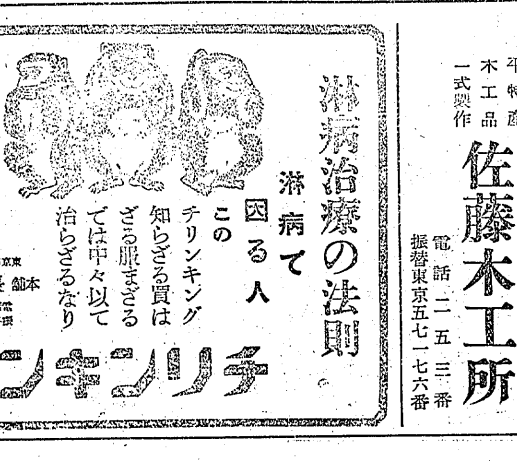 平特産
木工品
一式製作
佐藤木工所
電話二五三番
振替東京五七一七六番
淋病治療の法則
淋病て
困る人
この
チリンキング
知らざる買は
ざる服まざる
では中々以て
治らざるなり
本舗
チリンキン